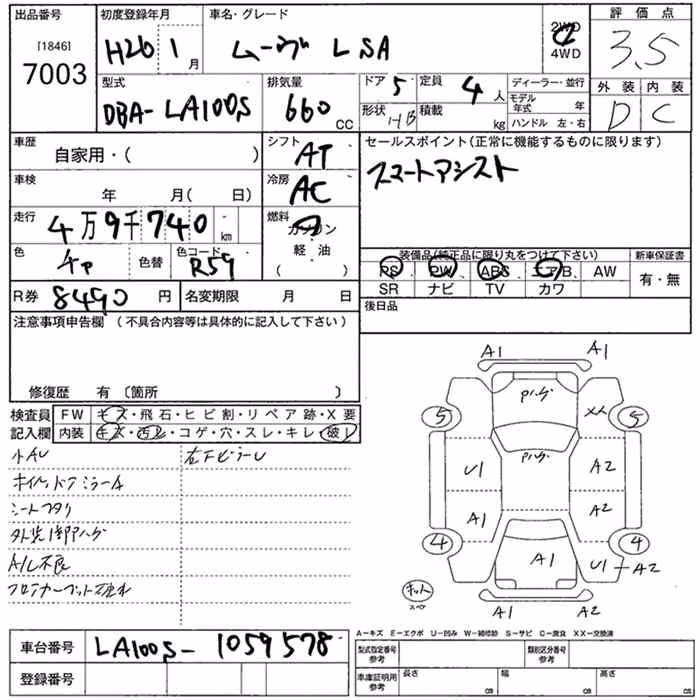 出品番号
[1846]
7003
初度登録年月
H26 1月
車名・グレード
ムーヴ L SA
2WD
4WD
評価点
3.5
外装 内装
D C
型式
DBA-LA100S
排気量
660 CC
ドア 5
定員 4人
形状 HB
積載 kg
ディーラー・並行
モデル年式 年
ハンドル 左・右
車歴
自家用・( )
シフト
AT
車検
年 月( 日)
冷房
AC
走行
4万9千740 km
燃料
ガソリン
軽・油
( )
色
色替
色コード
R59
R券 8490 円
名変期限 月 日
セールスポイント(正常に機能するものに限ります)
スマートアシスト
装備品(純正品に限り丸をつけて下さい)
PS、PW、ABS、エアB、AW
SR ナビ TV カワ
新車保証書
有・無
後日品
注意事項申告欄 (不具合内容等は具体的に記入して下さい)
修復歴 有 〔箇所 〕
検査員記入欄
FW キズ・飛石・ヒビ割・リペア跡・X要
内装 キズ・汚れ・コゲ・穴・スレ・キレ・破れ
小AU
シートヘタリ
A/L不良
A1 A1
5 XX 5
U1 A2
A1 A2
4 4
A1 U1-A2
A1 A2
スペア
A-キズ E-エクボ U-凹み W-補修跡 S-サビ C-腐食 XX-交換済
車台番号 LA100S-1059578
登録番号
型式指定番号 参考
類別区分番号 参考
車庫証明用 参考
長さ cm
幅 cm
高さ cm